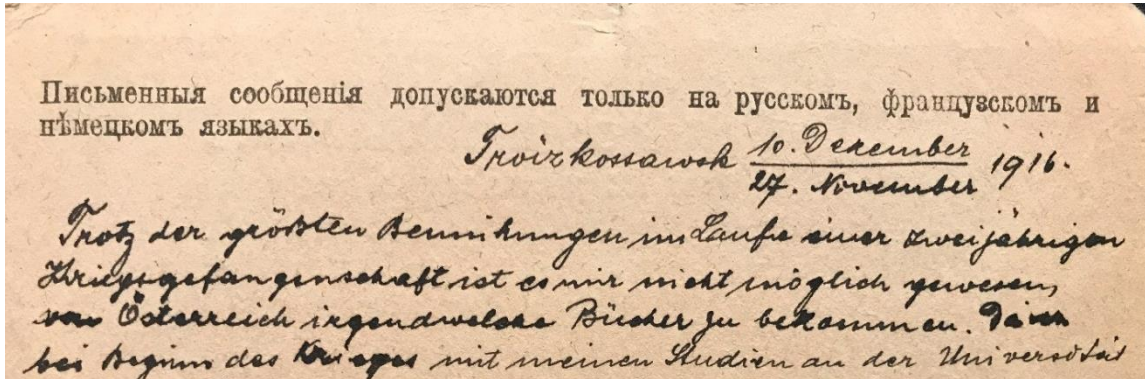 Письменныя сообщенія допускаются только на русскомъ, французскомъ и
нѣмецкомъ языкахъ.
Troizkossawsk 10. Dezember 1916.
27. November
Trotz der größten Bemühungen im Laufe einer zweijährigen
Kriegsgefangenschaft ist es mir nicht möglich gewesen,
von Österreich irgendwelche Bücher zu bekommen. Da
bei Beginn des Krieges mit meinen Studien an der Universität